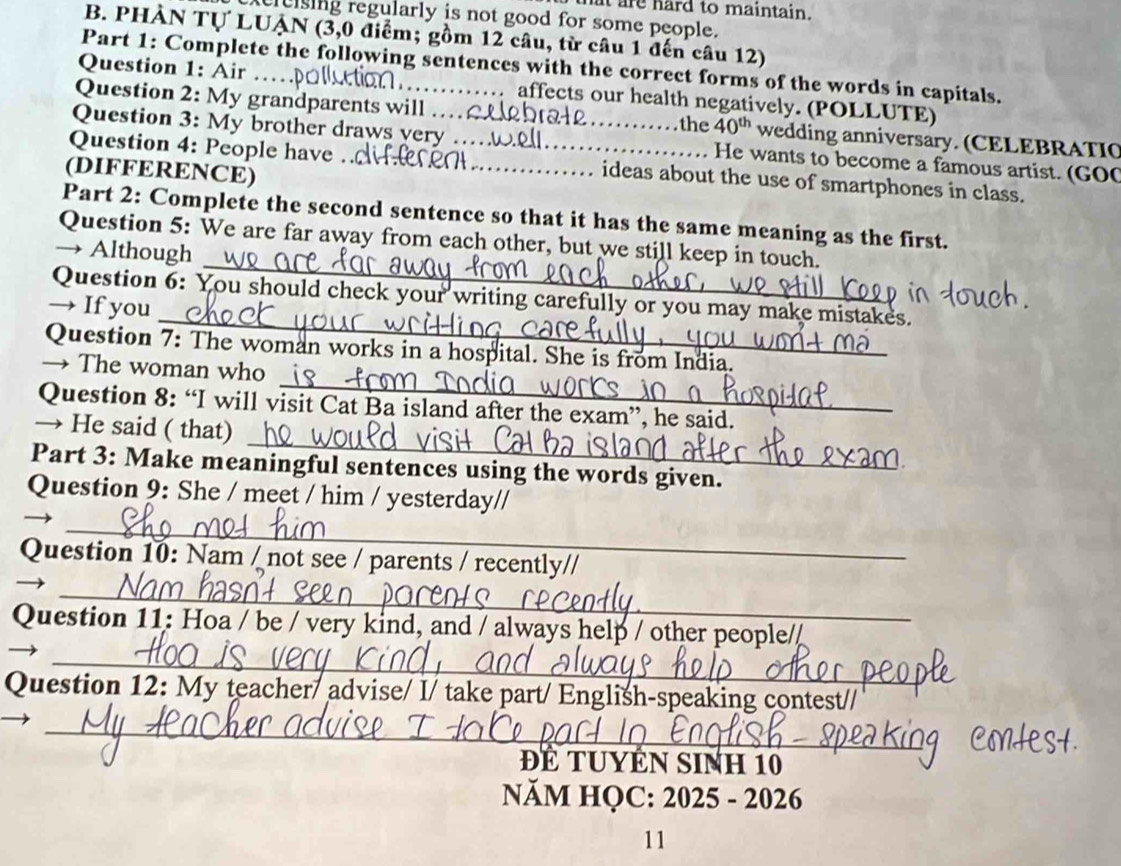 exercising regularly is not good for some people.
that are hard to maintain.
B. PHẦN TỰ LUẬN (3,0 điểm; gồm 12 câu, từ câu 1 đến câu 12)
Part 1: Complete the following sentences with the correct forms of the words in capitals.
Question 1: Air .....pollution............. affects our health negatively. (POLLUTE)
Question 2: My grandparents will ....celebrate...........the 40th wedding anniversary. (CELEBRATIO
Question 3: My brother draws very .....well..................... He wants to become a famous artist. (GOO
Question 4: People have ..different............... ideas about the use of smartphones in class.
(DIFFERENCE)
Part 2: Complete the second sentence so that it has the same meaning as the first.
Question 5: We are far away from each other, but we still keep in touch.
→ Although we are far away from each other, we still keep in touch.
Question 6: You should check your writing carefully or you may make mistakes.
→ If you check your writting carefully, you won't ma
Question 7: The woman works in a hospital. She is from India.
→ The woman who is from India works in a hospital.
Question 8: “I will visit Cat Ba island after the exam”, he said.
→ He said ( that) he would visit Cat Ba island after the exam.
Part 3: Make meaningful sentences using the words given.
Question 9: She / meet / him / yesterday//
→ She met him
Question 10: Nam / not see / parents / recently//
→ Nam hasn't seen parents recently.
Question 11: Hoa / be / very kind, and / always help / other people//
→ Hoa is very kind, and always help other people
Question 12: My teacher/ advise/ I/ take part/ English-speaking contest//
→ My teacher advise I take part in English - speaking contest.
ĐỀ TUYỂN SINH 10
NĂM HỌC: 2025 - 2026
11